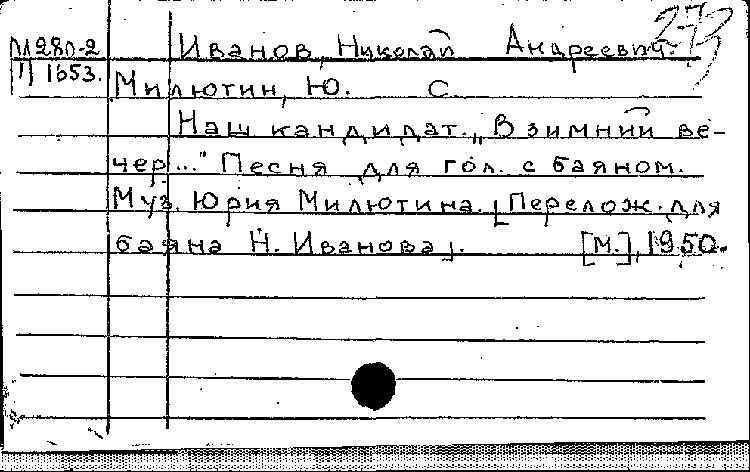 273
М280-2 Иванов, Николай Андреевич.
П 1653. Милютин, Ю. С.
Наш кандидат. „В зимний ве-
чер..." Песня для гол. с баяном.
Муз. Юрия Милютина. [Перелож. для
баяна Н. Иванова]. [М.], 1950.